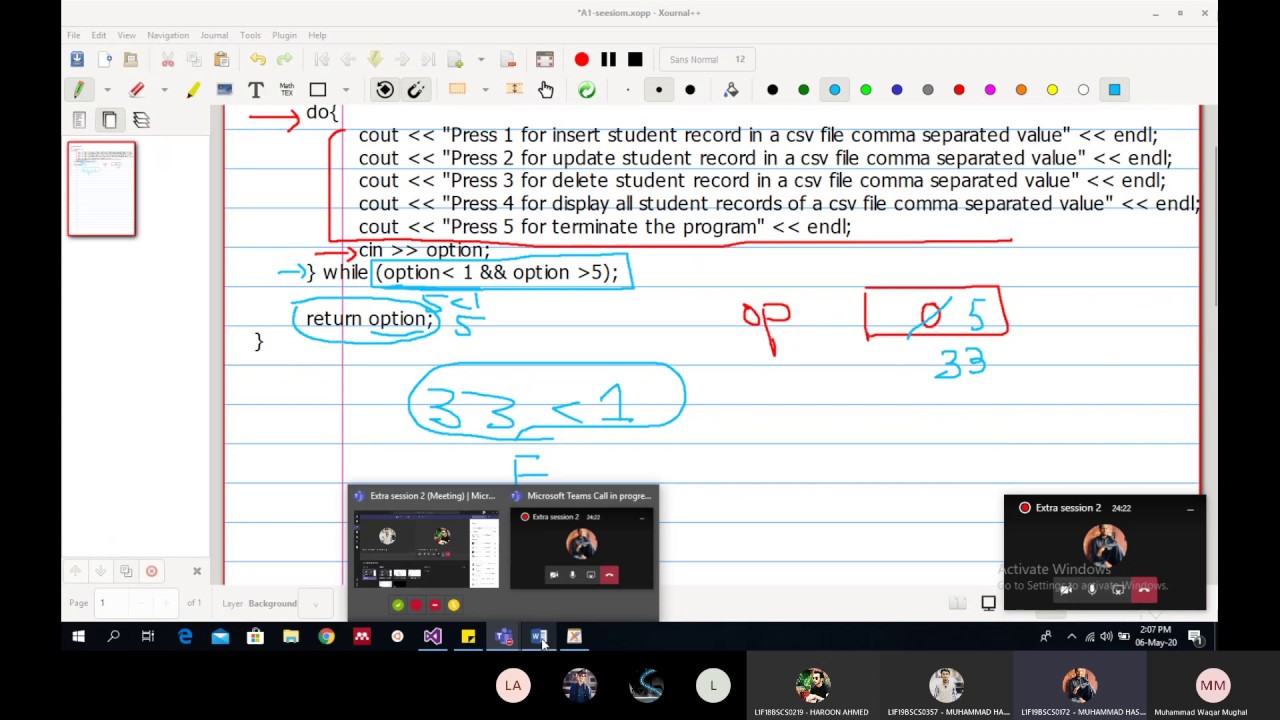 *A1-seesiom.xopp - Xournal++
File Edit View Navigation Journal Tools Plugin Help
Sans Normal 12
T Math TEX
do{
cout << "Press 1 for insert student record in a csv file comma separated value" << endl;
cout << "Press 2 for update student record in a csv file comma separated value" << endl;
cout << "Press 3 for delete student record in a csv file comma separated value" << endl;
cout << "Press 4 for display all student records of a csv file comma separated value" << endl;
cout << "Press 5 for terminate the program" << endl;
cin >> option;
} while (option< 1 && option >5);
5 <1
return option;
5
op
0 5
}
33
33 <1
F
Extra session 2 (Meeting) | Micr...
Microsoft Teams Call in progre...
Extra session 2 24:22
Extra session 2 24:22
Activate Windows
Go to Settings to activate Windows.
Page 1 of 1 Layer Background
2:07 PM
06-May-20
1
LA
L
MM
L1F18BSCS0219 - HAROON AHMED
L1F19BSCS0357 - MUHAMMAD HA...
L1F19BSCS0172 - MUHAMMAD HAS...
Muhammad Waqar Mughal